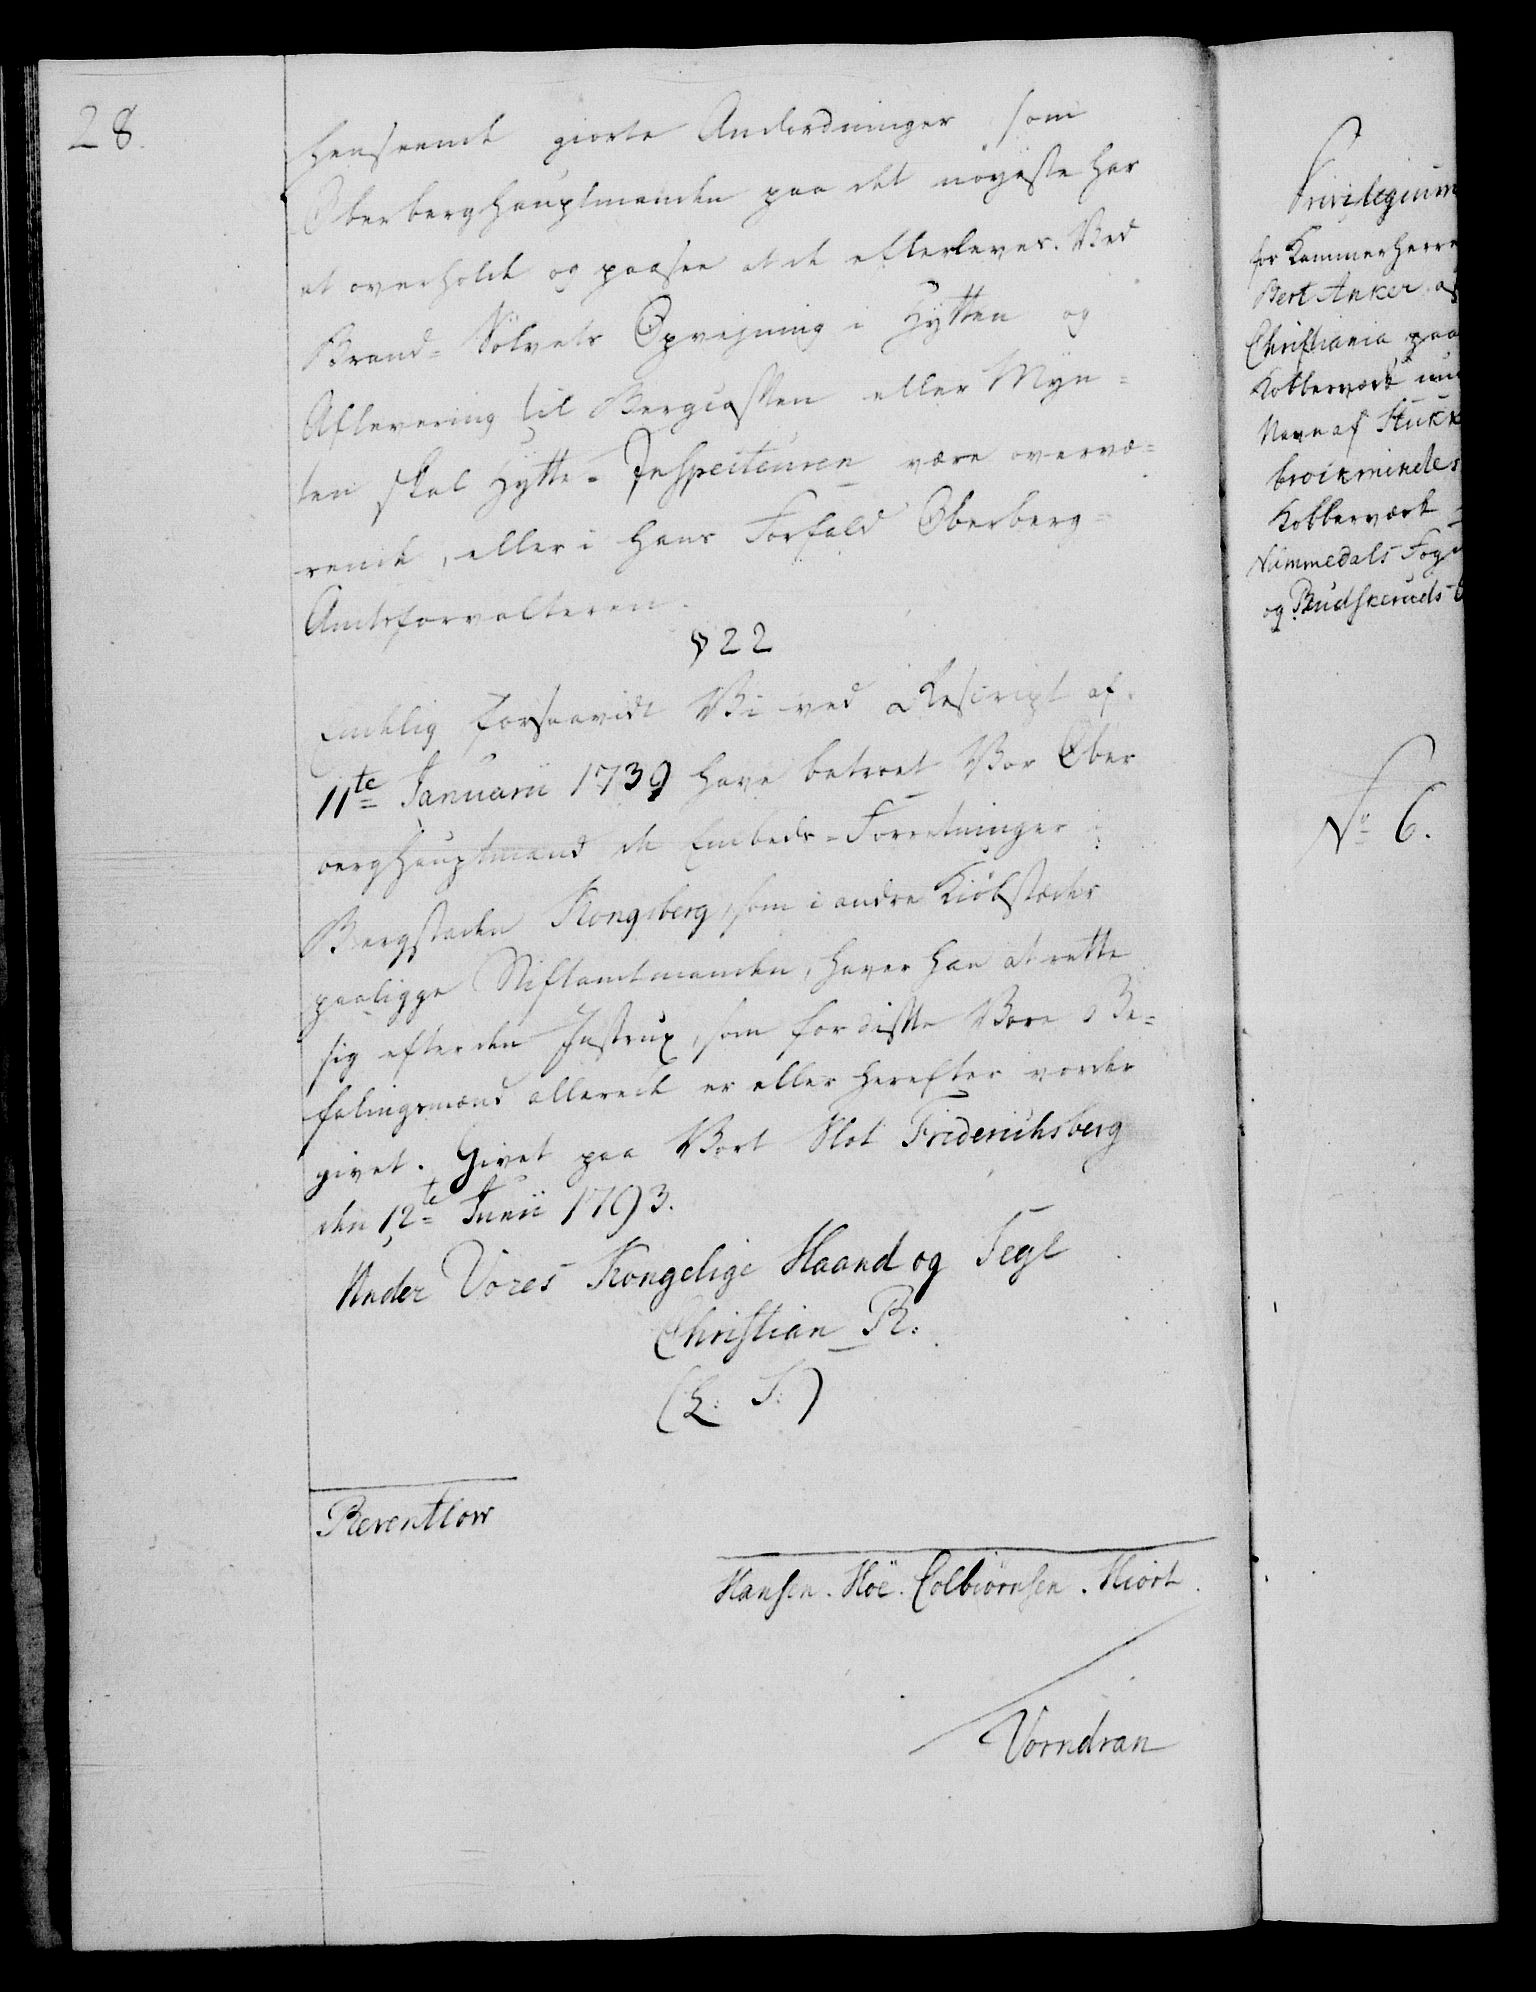 28.
henseende giorte Anordninger som
Oberberghauptmanden paa det nöyeste har
at overholde og paasee at de efterleves. Ved
Brand-Sölvets Opvejning i Hytten og
Aflevering til Bergcassen eller Myn-
ten skal Hytte-Inspecteuren være overvæ-
rende, eller i hans Forfald Oberberg-
Amtsforvalteren.
§ 22
Endelig forsaavidt Vi ved Rescript af
11te Januarii 1739 have betroet Vor Ober
berghauptmand de Embeds-Forretninger i
Bergstaden Kongsberg, som i andre Kiöbstæder
paaligge Stiftamtmanden, haver han at rette
sig efter den Instrux, som for disse Vore Be-
falingsmænd allerede er eller herefter vorder
givet. Givet paa Vort Slot Friderichsberg
den 12te Junii 1793.
Under Vores Kongelige Haand og Segl
Christian R.
(L. S.)
Reventlow
Hansen. Höe. Colbiörnsen. Hiort.
Vorndran
Privilegium
for Kammerherre
Bert Anker af
Christiania paa
Kobberværk un
Navn af Stukk
broickmindes
Kobberværk
Nummedals Fog
og Budskeruds
No 6.